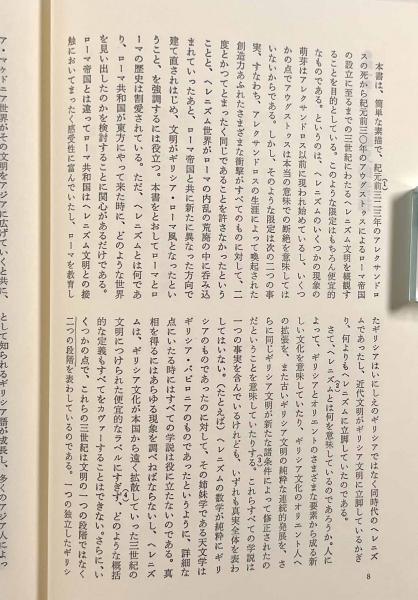 本書は、簡単な素描で、紀元前三二三年のアレクサンドロ
スの死から紀元前三〇年のアウグストゥスによるローマ帝国
の設立に至るまでの三世紀にわたるヘレニズム文明を概観す
ることを目的としている。このような限定はもちろん便宜的
なものである。というのは、ヘレニズムのいくつかの現象の
萌芽はアレクサンドロス以前に現われ始めているし、いくつ
かの点でアウグストゥスは本当の意味での断絶を意味しては
いないからである。しかし、そのような限定は次の二つの事
実、すなわち、アレクサンドロスの生涯によって喚起された
創造力あふれたさまざまな衝撃がすべてのものに対して、二
度とかつてとまったく同じであることを許さなかったという
ことと、ヘレニズム世界がローマの内乱の荒廃の中に呑み込
まれていったあと、ローマ帝国と共に新たに異なった方向で
建て直されはじめ、文明がギリシア・ローマ風となったとい
うこと、を強調するには役立つ。本書をとおしてローマとロ
ーマの歴史は割愛されている。ただ、ヘレニズムとは何であ
り、ローマ共和国が東方にやって来た時に、どのような世界
を見い出したのかを検討することに関心があるだけである。
ローマ帝国とは違ってローマ共和国はヘレニズム文明との接
触においてまったく感受性に富んでいたし、ローマを教育し
たギリシアはいにしえのギリシアではなく同時代のヘレニズ
ムであったし、近代文明がギリシア文明に立脚しているかぎ
り、何よりもヘレニズムに立脚していたのである。
さて、ヘレニズムとは何を意味しているのであろうか。人に
よって、ギリシアとオリエントのさまざまな要素から成る新
しい文化を意味していたり、ギリシア文化のオリエント人へ
の拡張を、また古いギリシア文明の純粋な連続的発展を、さ
らに同じギリシア文明が新たな諸条件によって修正されたの
だということを意味していたりする。これらすべての学説は
一つの事実を含んでいるけれども、いずれも真実全体を表わ
してはいない。〈たとえば〉ヘレニズムの数学が純粋にギリ
シアのものであったのに対して、その姉妹学である天文学は
ギリシア・バビロニアのものであったというように、詳細な
点にいたる時にはすべての学説は役に立たないのである。真
相を得るにはあらゆる現象を調べねばならないし、ヘレニズ
ムは、ギリシア文化が本国から遠く拡散していった三世紀の
文明につけられた便宜的なラベルにすぎず、どのような概括
的な定義もすべてをカヴァーすることはできない。さらに、い
くつかの点で、これらの三世紀は文明の一つの段階ではなく
二つの段階を表わしているのである。一つの独立したギリシ
8
ア・マケドニア世界がその文明をアジアに広げていくと共に、
として知られるギリシア語が成長し、多くのアジア人によっ